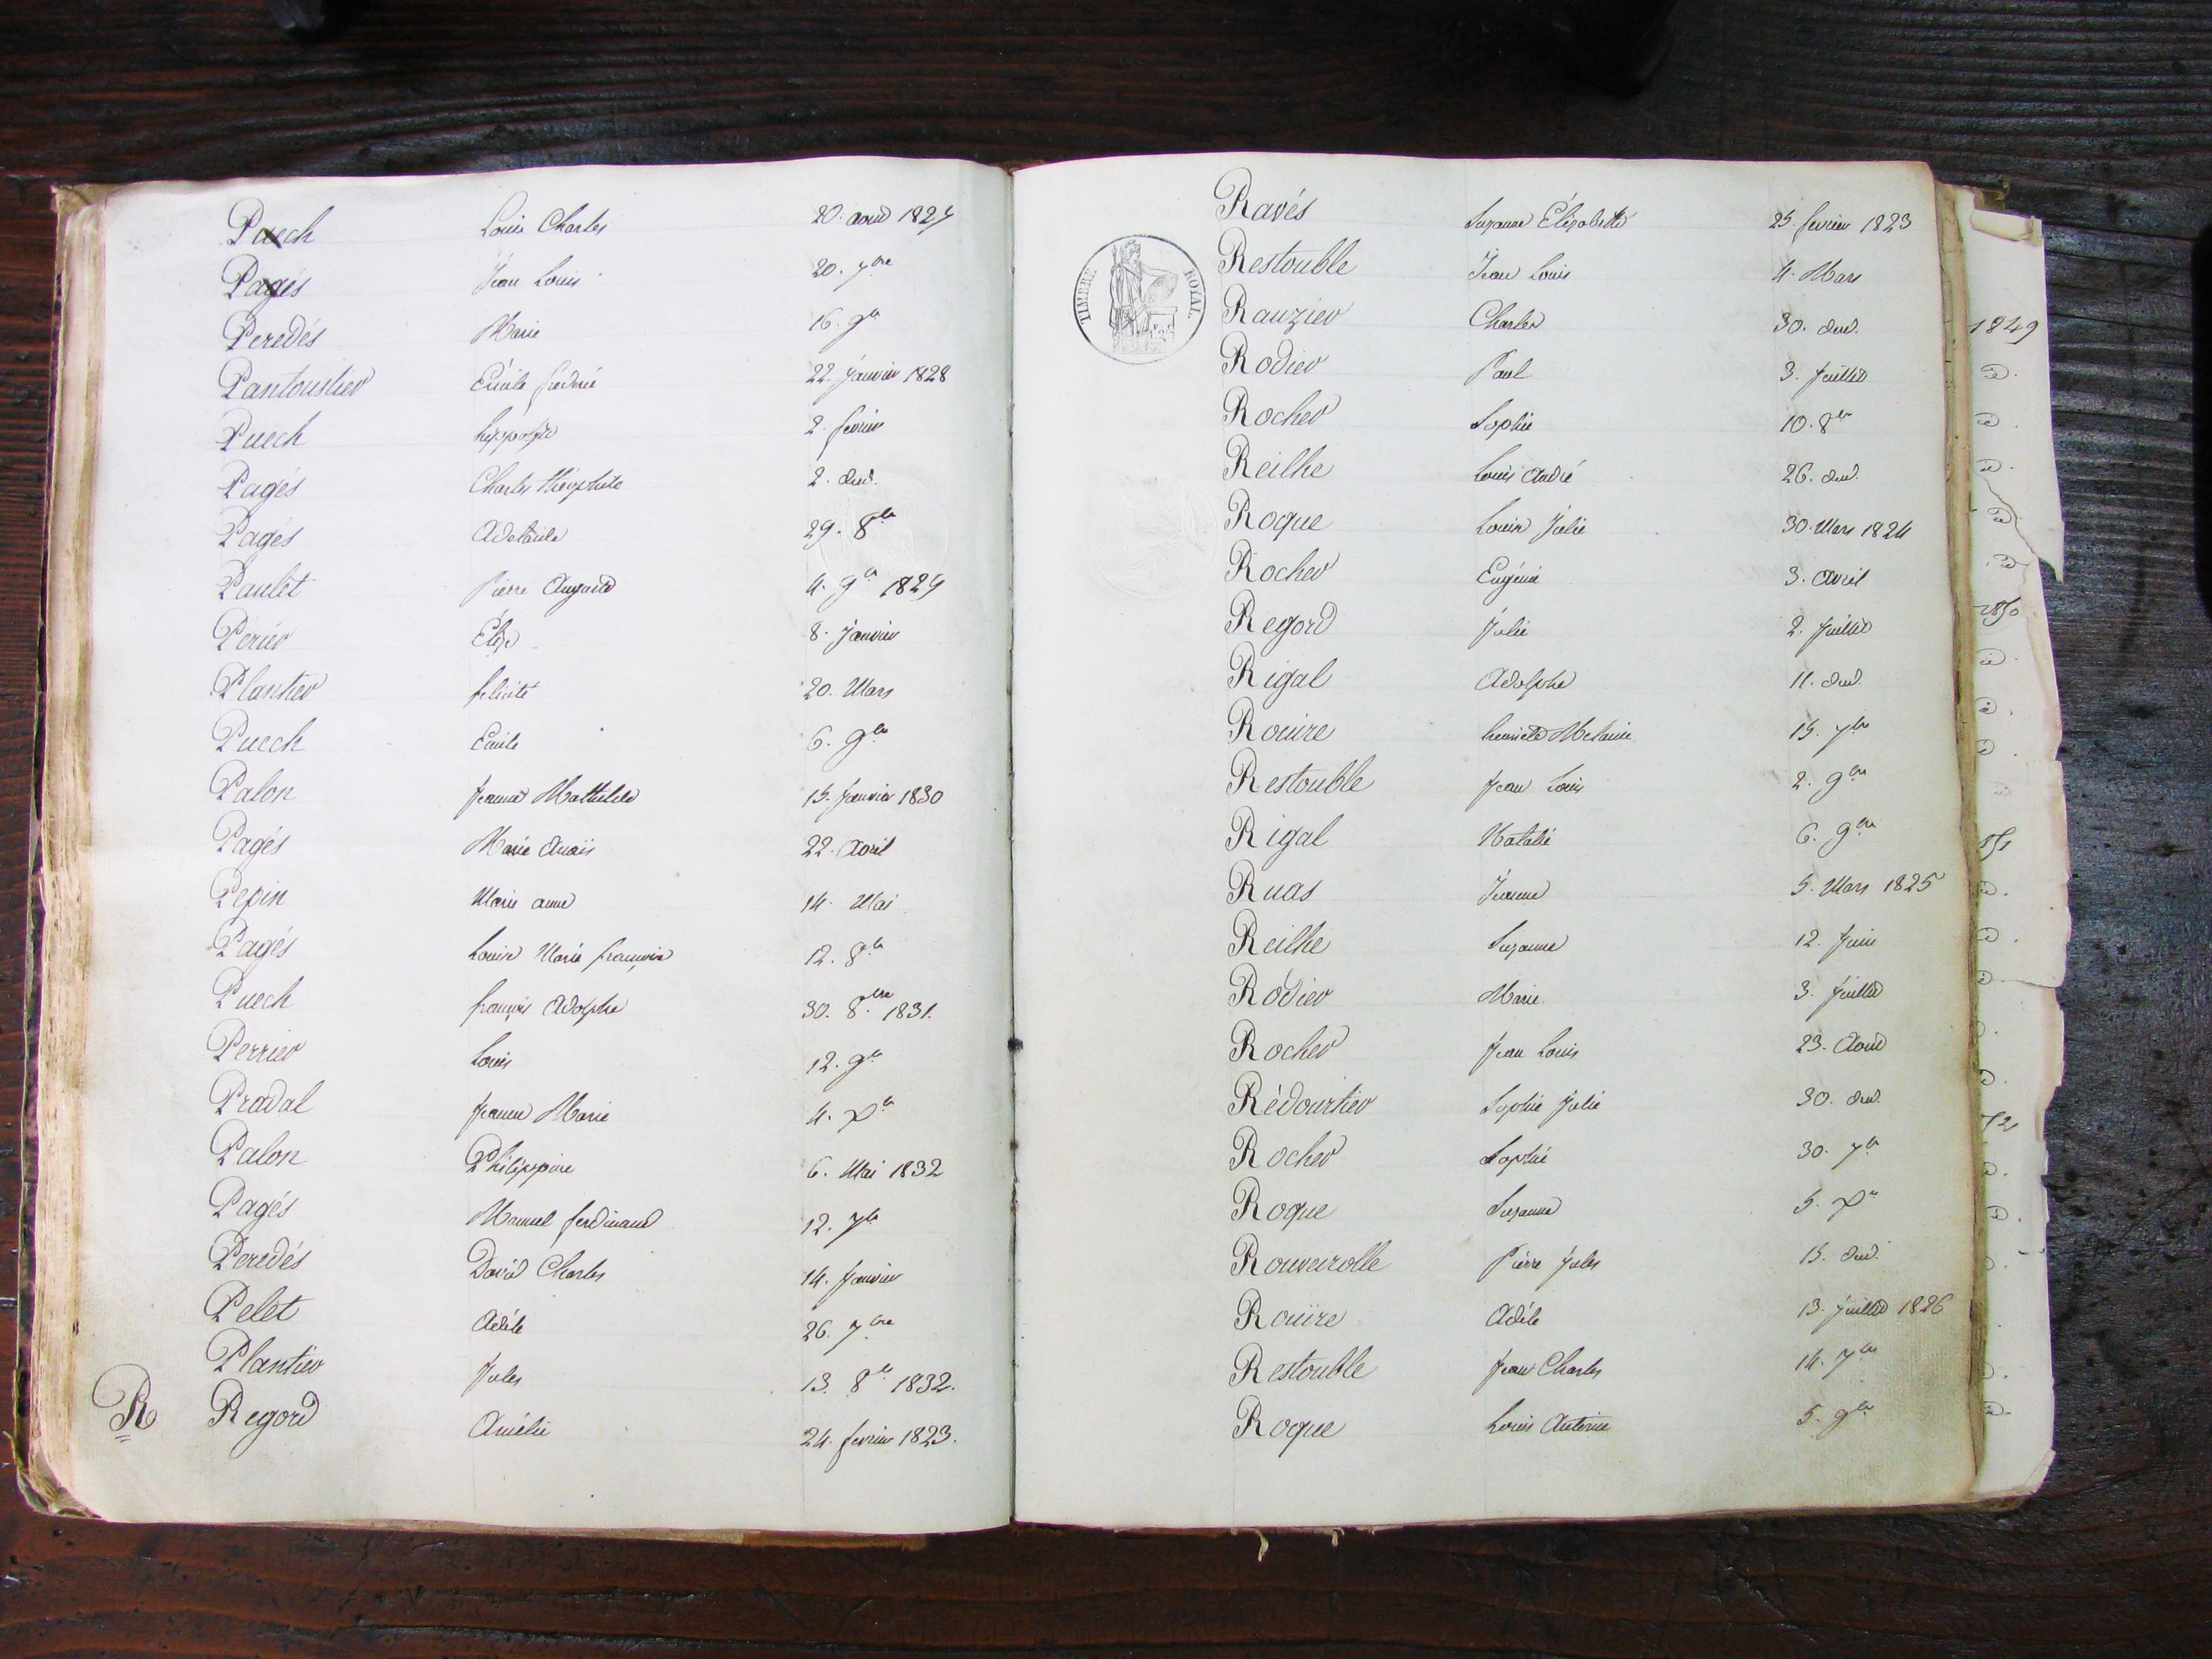 Puech Louis Charles 20. aout 1827
Pagés Jean Louis 20. 7bre
Peredés Marie 16. 9bre
Pantoustier Emile frederic 22. Janvier 1828
Puech hippolyte 2. fevrier
Pagés Charles théophile 2. dud.
Pagés Adelaide 29. 8bre
Paulet Pierre Auguste 4. 9bre 1829
Perier Élize 8. Janvier
Plantier felicité 20. Mars
Puech Emile 6. 9bre
Palon Jeanne Mathilde 15. Janvier 1830
Pagés Marie Anaïs 22. Avril
Pepin Marie anne 14. Mai
Pagés Louise Marie françoise 12. 8bre
Puech françois Adolphe 30. 8bre 1831.
Perrier Louis 12. 9bre
Pradal Jeanne Marie 4. Xbre
Palon Philippine 6. Mai 1832
Pagés Manuel ferdinand 12. 7bre
Peredés David Charles 14. Janvier
Pelet Adéle 26. 7bre
Plantier Jules 13. 8bre 1832.
R Regord Amélie 24. fevrier 1823.
Ravés Suzanne Élizabeth 25. fevrier 1823
TIMBRE ROYAL.
Restouble Jean Louis 4. Mars
Rauzier Charles 30. dud.
Rodier Paul 3. Juillet
Rocher Sophie 10. 8bre
Reilhe Louis André 26. dud.
Roque Louise Julie 30. Mars 1824
Rocher Eugénie 3. Avril
Regord Julie 2. Juillet
Rigal Adolphe 11. dud.
Rouire henriette Melanie 15. 7bre
Restouble Jean Louis 2. 9bre
Rigal Natalie 6. 9bre
Ruas Jeanne 5. Mars 1825
Reilhe Suzanne 12. Juin
Rodier Marie 3. Juillet
Rocher Jean Louis 23. Aout
Rédourtier Sophie Julie 30. dud.
Rocher Sophie 30. 7bre
Roque Suzanne 5. Xbre
Rouveirolle Pierre Jules 15. dud.
Rouïre Adéle 13. Juillet 1826
Restouble Jean Charles 14. 7bre
Roque Louis Antoine 5. 9bre
1849